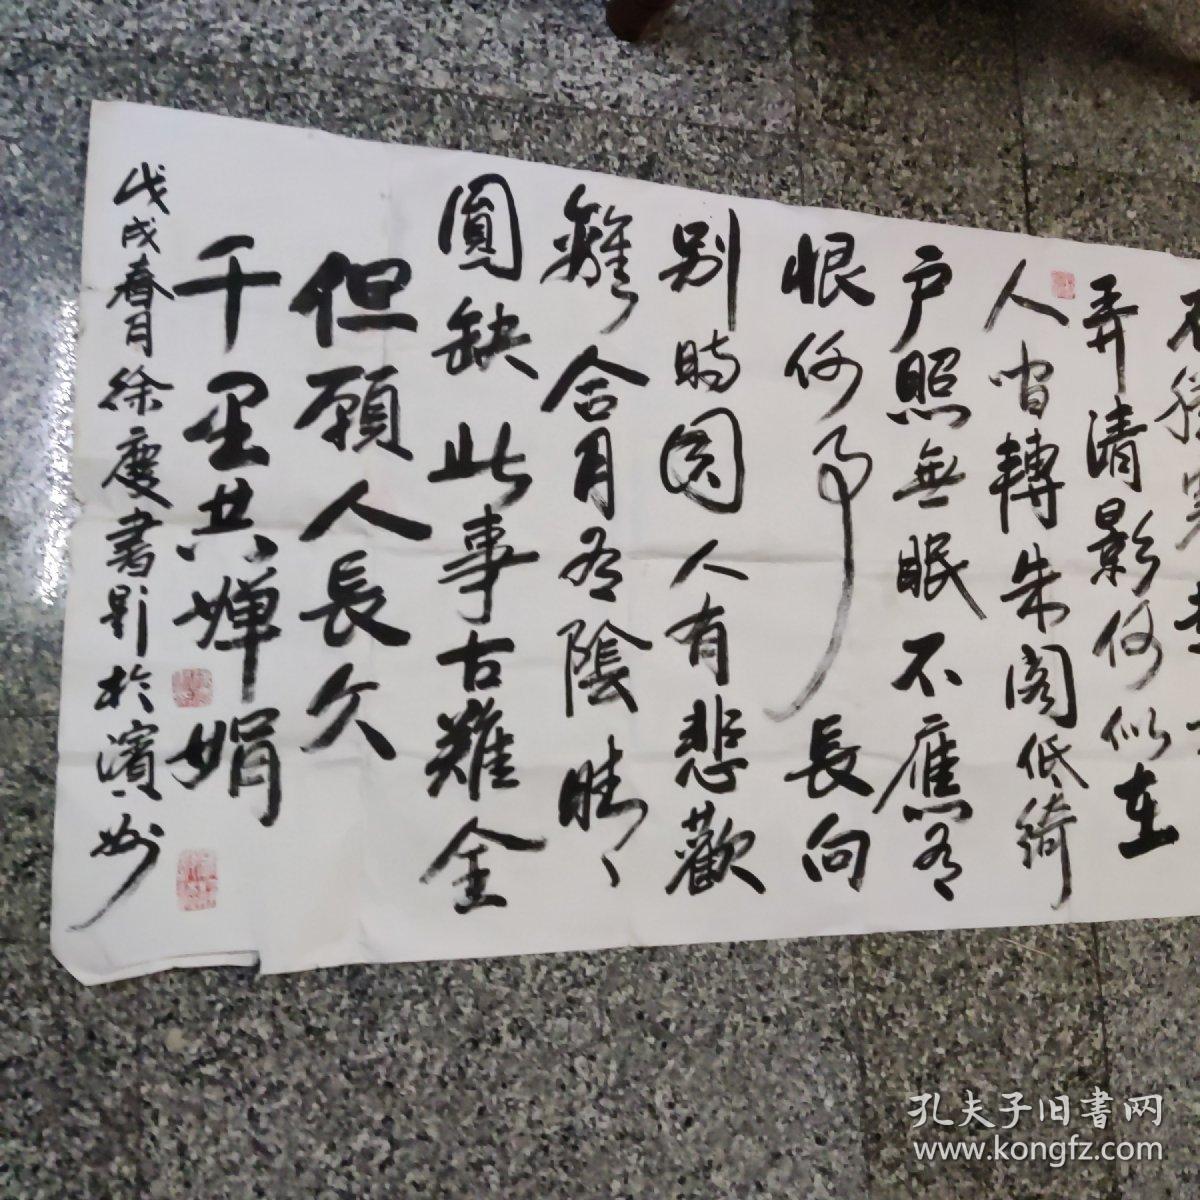 不勝寒
弄清影何似在
人間轉朱閣低綺
户照無眠不應有
恨何事長向
别時圆人有悲歡
離合月有陰晴
圓缺此事古難全
但願人長久
千里共嬋娟
戊戌春月徐慶書於濱州
孔夫子旧書网
www.kongfz.com